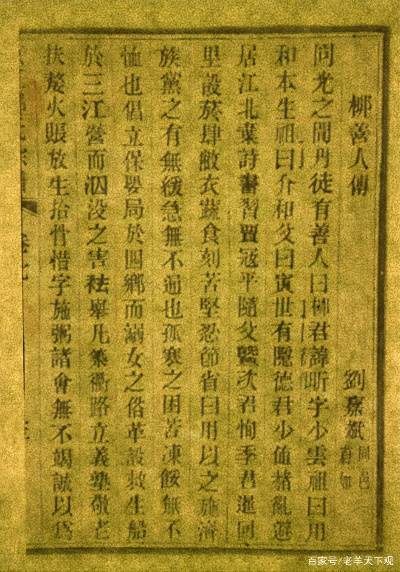 柳善人傳
劉嘉斌
同光之間丹徒有善人曰柳君諱昕字少雲祖曰用
和本生祖曰介和父曰寅世有隱德君少値赭亂避
居江北棄詩書習買冠平隨父曁次君恂季君暹囘
里設菸肆敝衣蔬食刻苦堅忍節省日用以之施濟
族黨之有無緩急無不通也孤寒之困苦凍餒無不
恤也倡立保嬰局於四鄉而溺女之俗革設救生船
於三江營而泅没之害祛舉凡築衢路立義塾敬老
扶嫠火賬放生拾骨惜字施粥諸會無不竭誠以爲
卷七
百家号/老羊天下观